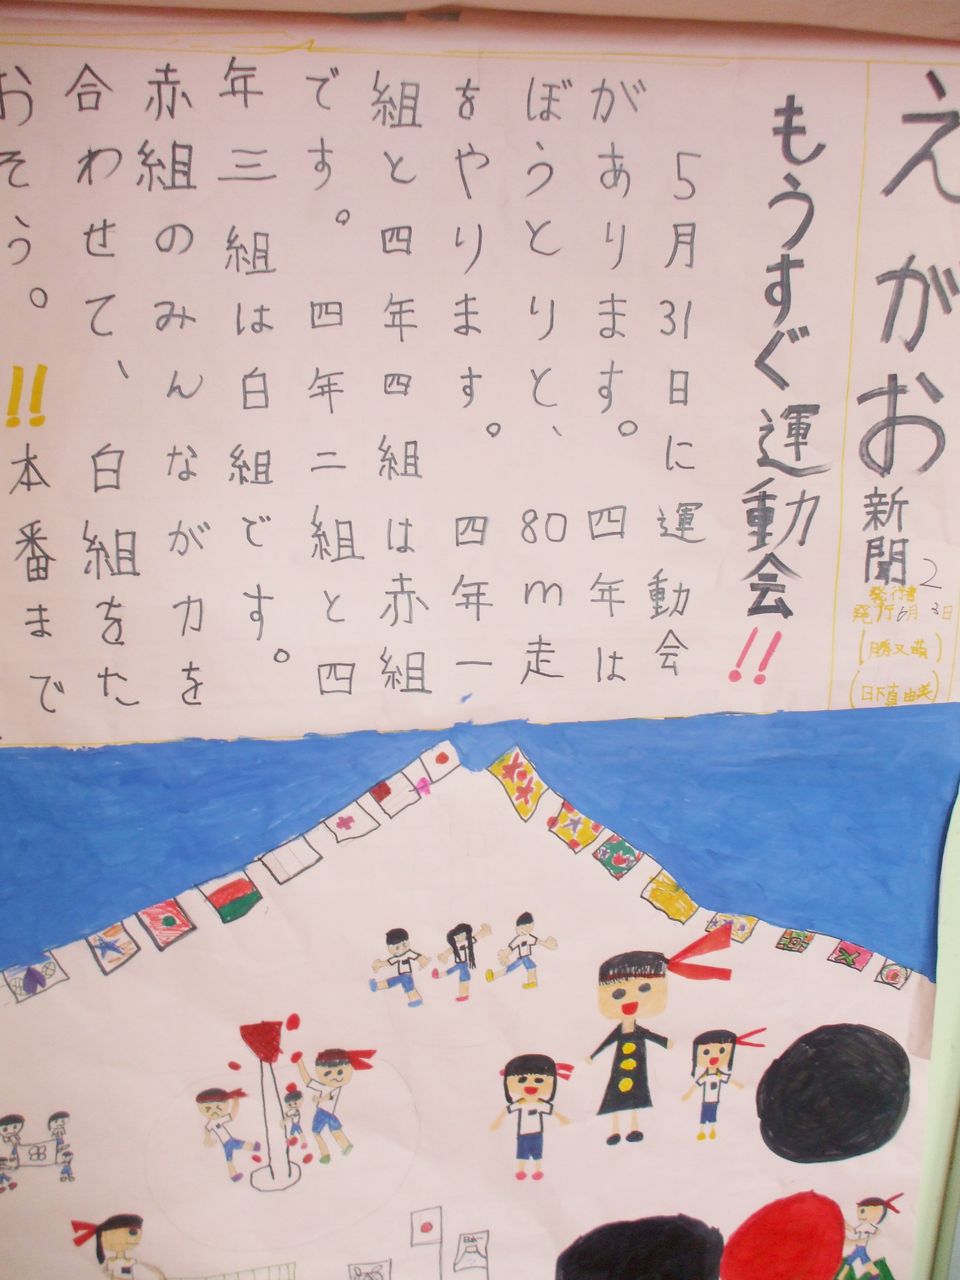 えがお新聞2
発行者
発行6月3日
(勝又萌)
(日下真由美)
もうすぐ運動会!!
5月31日に運動会
があります。四年は
ぼうとりと、80m走
をやります。四年一
組と四年四組は赤組
です。四年二組と四
年三組は白組です。
赤組のみんなが力を
合わせて、白組をた
おそう。!!本番まで